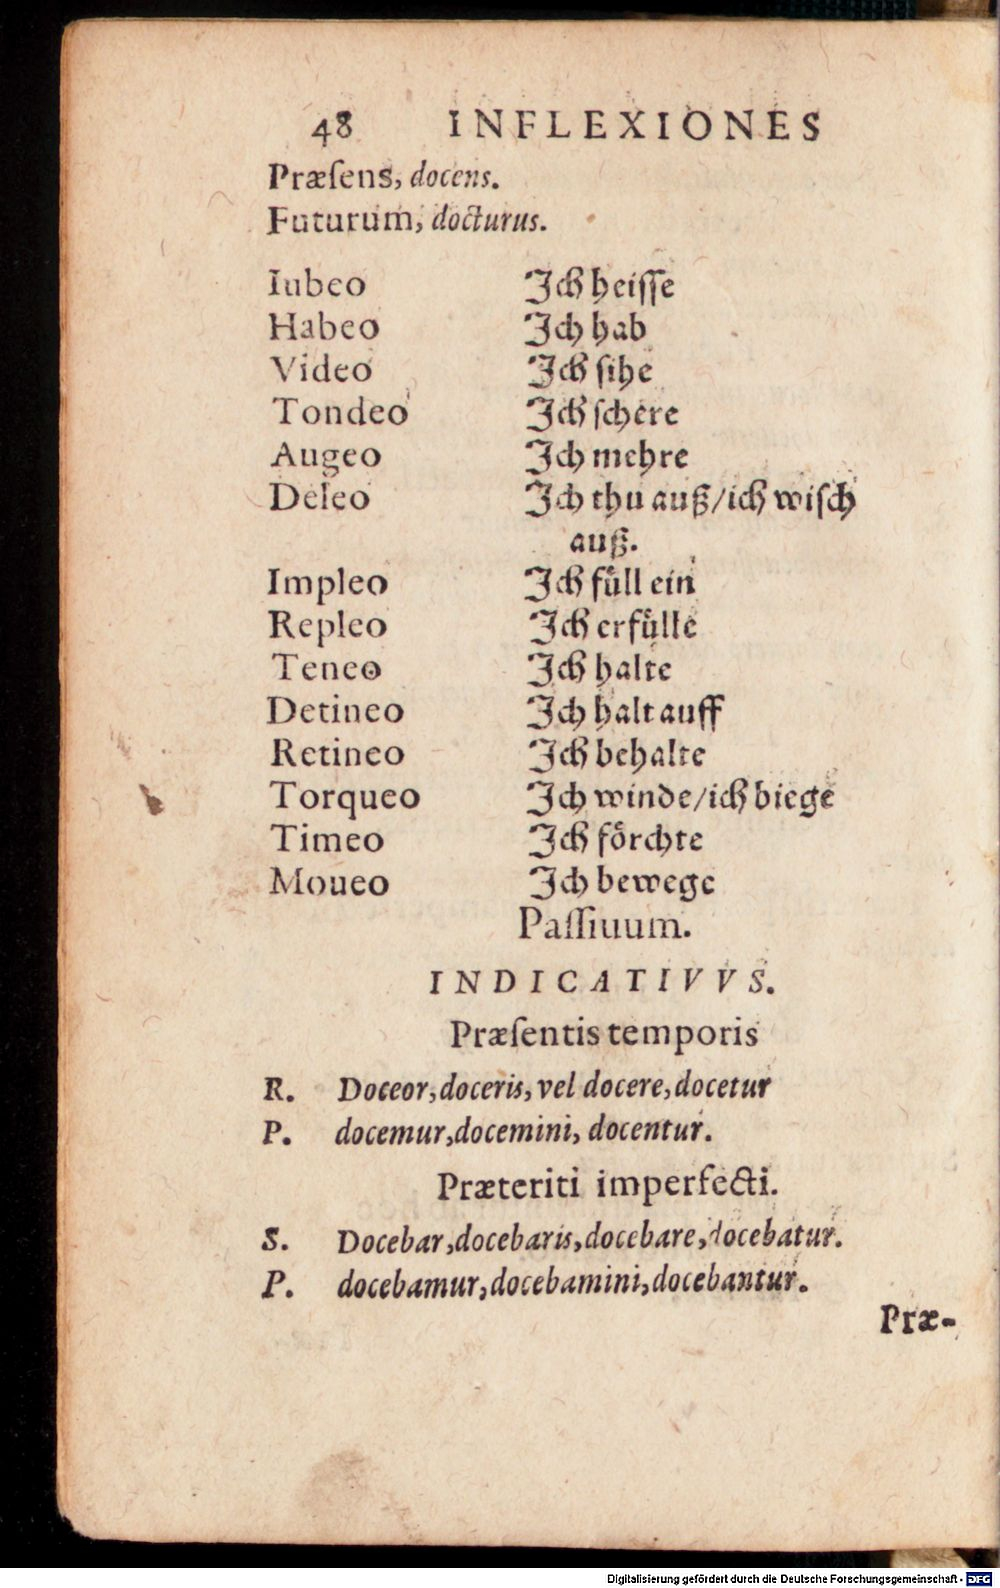 48 INFLEXIONES
Præſens, docens.
Futurum, docturus.
Iubeo Ich heiſſe
Habeo Ich hab
Video Ich ſihe
Tondeo Ich ſchere
Augeo Ich mehre
Deleo Ich thu auß/ich wiſch
auß.
Impleo Ich fuͤll ein
Repleo Ich erfuͤlle
Teneo Ich halte
Detineo Ich halt auff
Retineo Ich behalte
Torqueo Ich winde/ich biege
Timeo Ich foͤrchte
Moueo Ich bewege
Paſſiuum.
INDICATIVVS.
Præſentis temporis
R. Doceor, doceris, vel docere, docetur
P. docemur, docemini, docentur.
Præteriti imperfecti.
S. Docebar, docebaris, docebare, docebatur.
P. docebamur, docebamini, docebantur.
Præ-
Digitalisierung gefördert durch die Deutsche Forschungsgemeinschaft - DFG